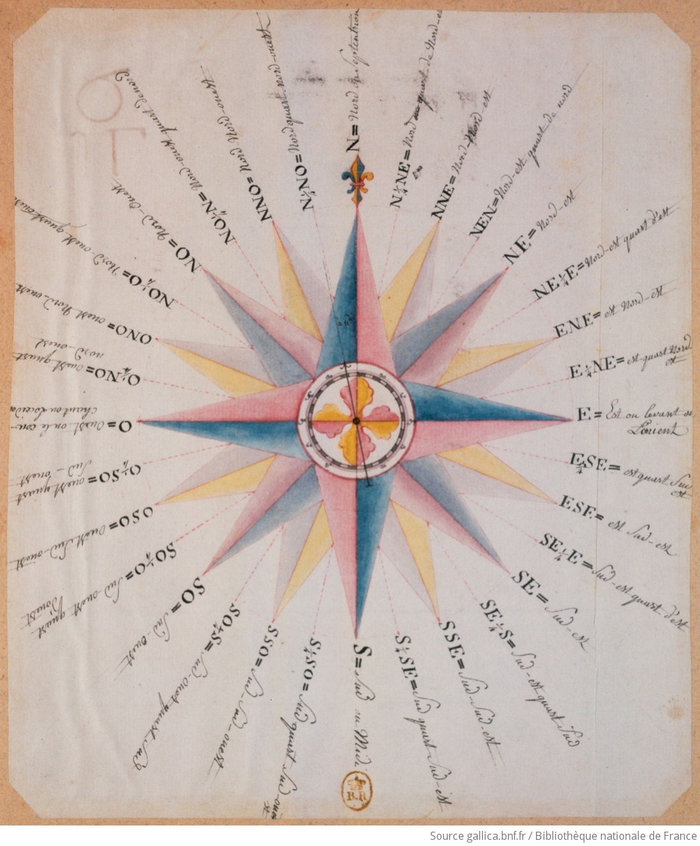 N= Nord ou Septentrion
N¼NE= Nord quart de Nord-e
NNE= Nord Nord est
NEN= Nord-est quart de nord
NE= Nord-est
NE¼E= Nord-est quart d'est
ENE= est Nord-est
E¼NE= est quart Nord
est
E= Est ou levant ou
Lorient
E¼SE= est quart Sud
est
ESE= est Sud-est
SE¼E= Sud-est quart d'est
SE= Sud-est
SE¼S= Sud-est quart Sud
SSE= Sud Sud est
S¼SE= Sud quart Sud-est
S= Sud ou Midi
S¼SO= Sud quart Sud-oue
SSO= Sud Sud ouest
SO¼S= Sud-ouest quart Sud
SO= Sud ouest
SO¼O= Sud-ouest quart
l'ouest
OSO= Ouest Sud-ouest
O¼SO= ouest quart
Sud-ouest
O= Ouest ou le cou-
chant ou loccide
O¼NO= ouest quart
nord ouest
ONO= ouest Nord-ouest
NO¼O= Nord ouest quart ouest
NO= Nord ouest
NO¼N= Nord-ouest quart de nord
NNO= Nord Nord-ouest
N¼NO= Nord quart nord-ouest
B.R
Source gallica.bnf.fr / Bibliothèque nationale de France